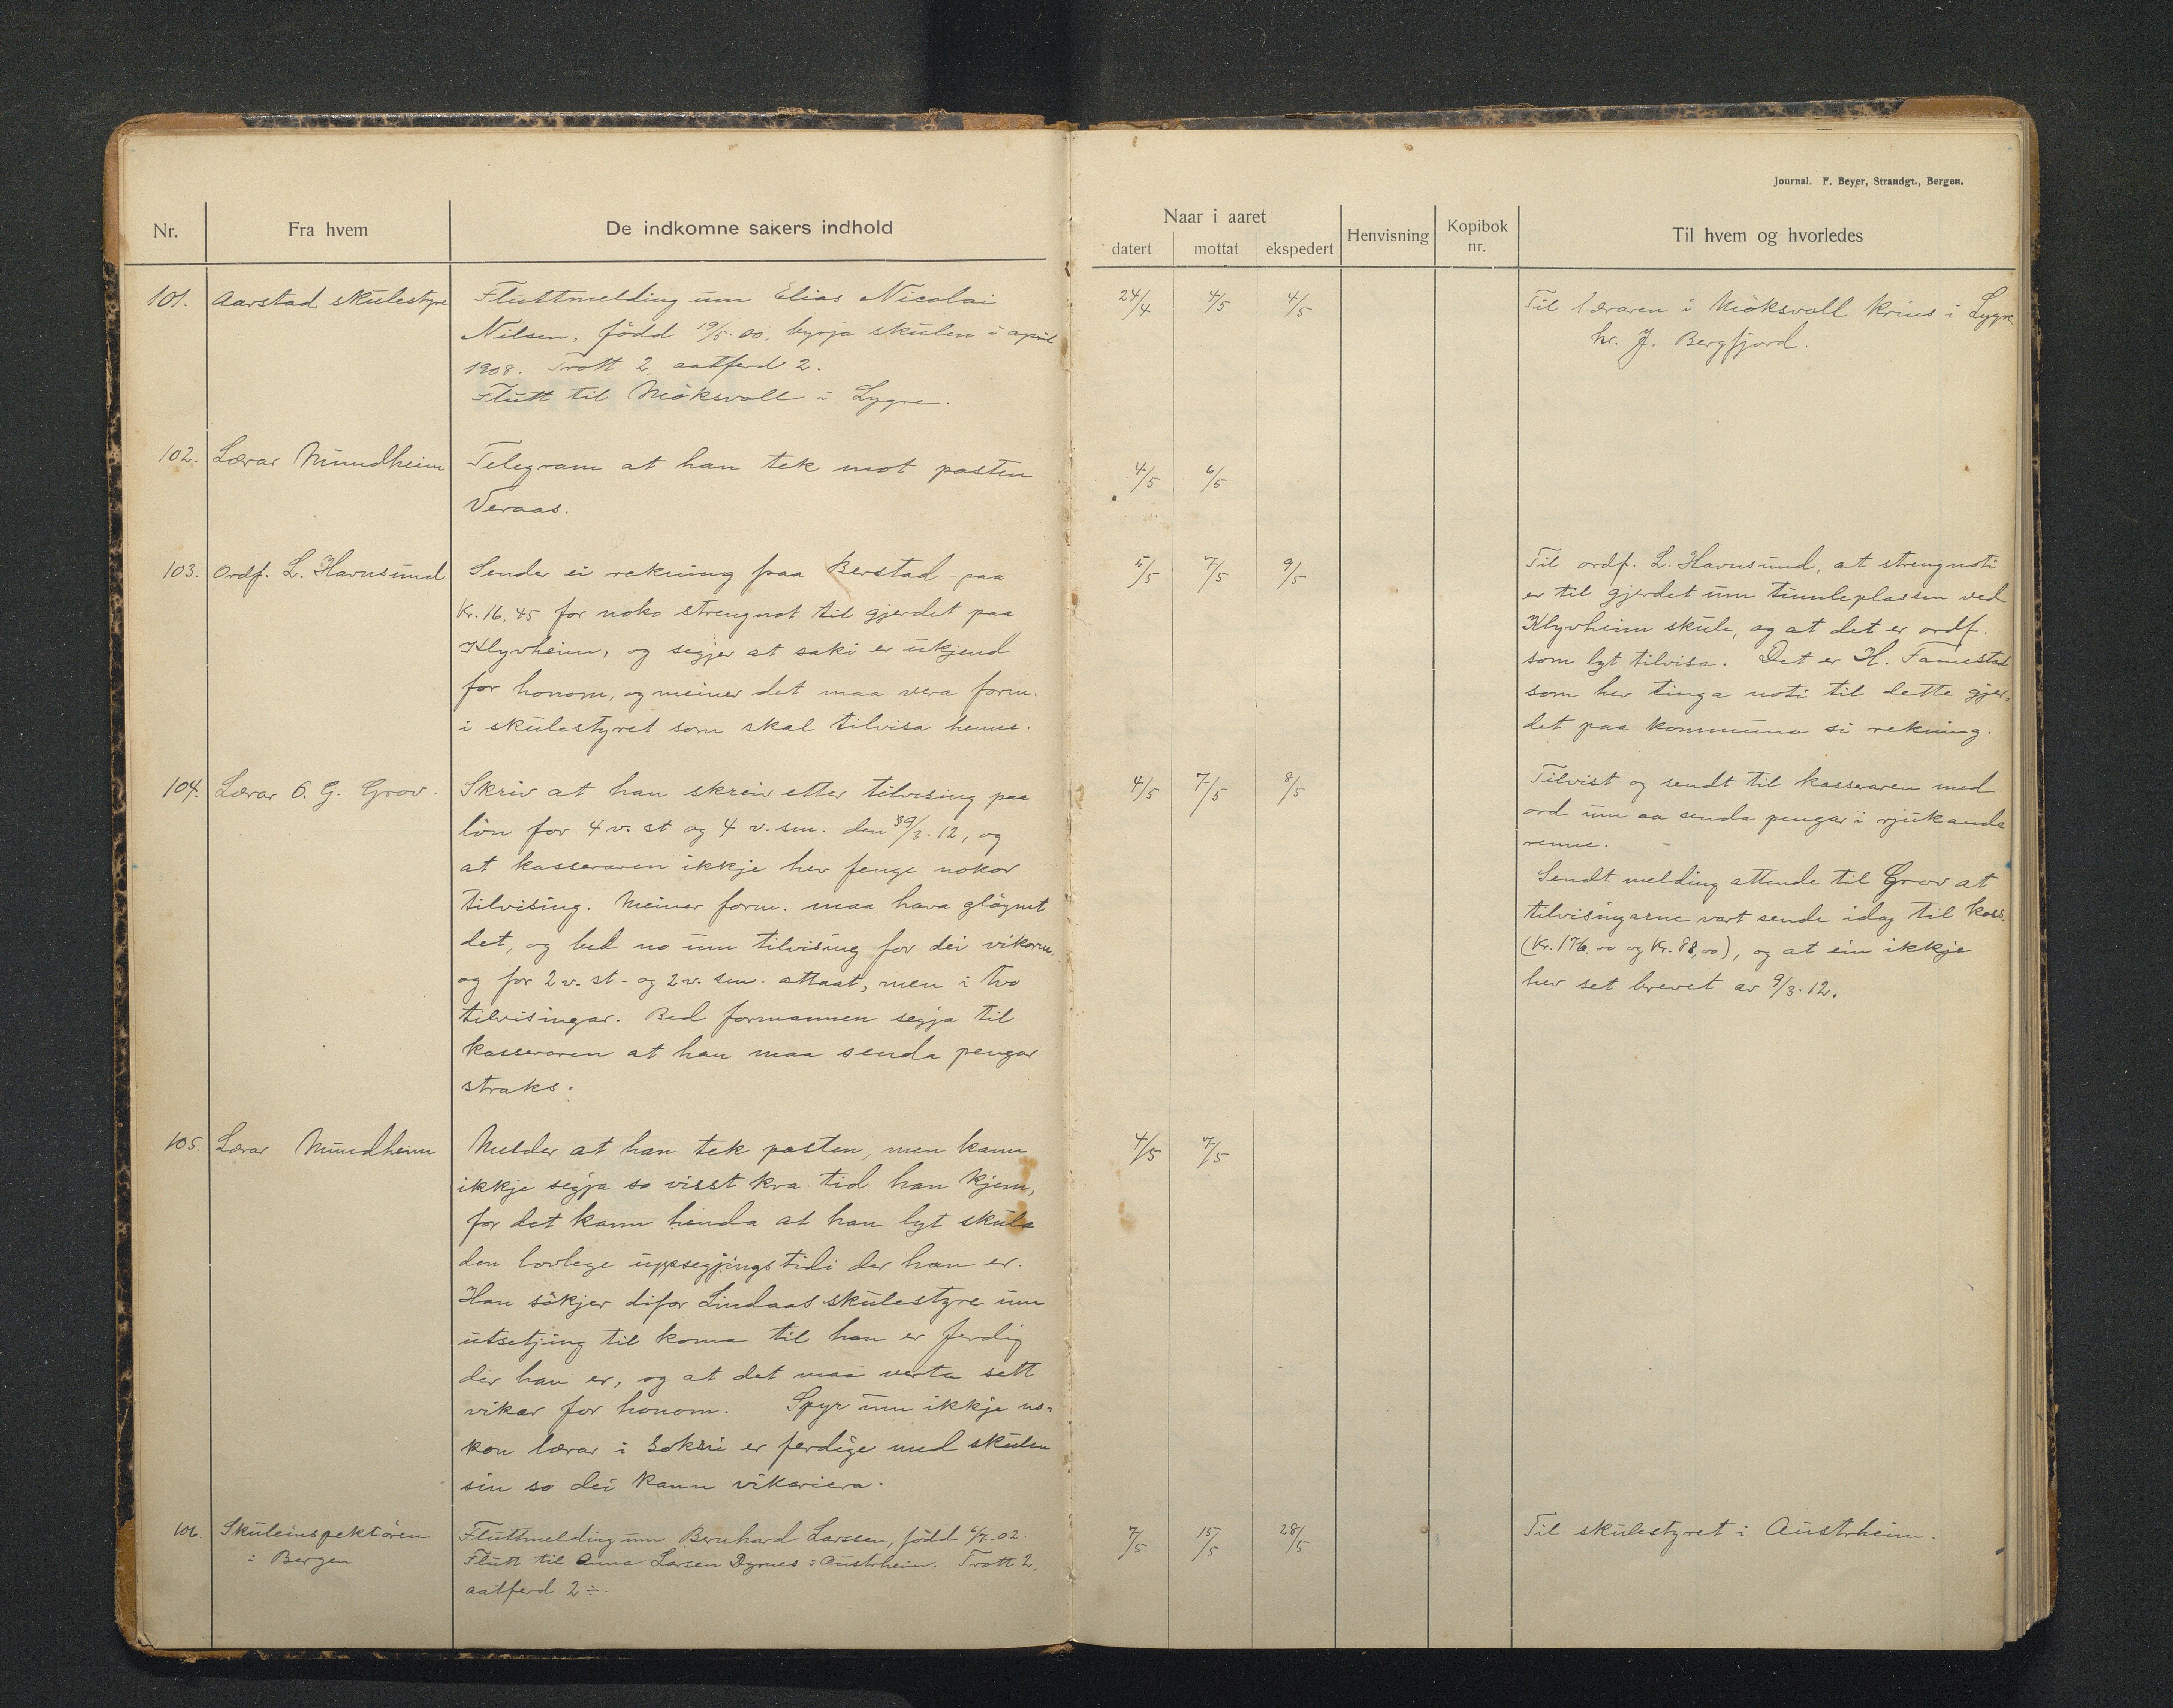 Journal. F. Beyer, Strandgt., Bergen.
Nr.
Fra hvem
De indkomne sakers indhold
Naar i aaret
datert
mottat
ekspedert
Henvisning
Kopibok
nr.
Til hvem og hvorledes
101.
Aarstad skulestyre
Fluttmelding um Elias Nicolai
Nilsen, född 19/5.00, byrja skulen i april
1908. Trott 2, aatferd 2.
Flutt til Möksvoll i Lygre.
24/4
4/5
4/5
Til læraren i Möksvoll krins i Lygre
hr. J. Bergfjord.
102.
Lærar Mundheim
Telegram at han tek mot posten
Veraas.
4/5
6/5
103.
Ordf. L. Havnsund
Sender ei rekning fraa Berstad paa
Kr. 16,45 for noko strengnot til gjerdet paa
Klyvheim, og segjer at saki er ukjend
for honom, og meiner det maa vera form.
i skulestyret som skal tilvisa henne.
5/5
7/5
9/5
Til ordf. L. Havnsund, at strengnoti
er til gjerdet um tumleplassen ved
Klyvheim skule, og at det er ordf.
som lyt tilvisa. Det er H. Famestad
som hev tinga noti til dette gjer=
det paa kommuna si rekning.
104.
Lærar O. G. Grov.
Skriv at han skreiv etter tilvising paa
lön for 4 v. st og 4 v. sm. den 9/3.12, og
at kasseraren ikkje hev fenge nokor
tilvising. Meiner form. maa hava gløymt
det, og bed no um tilvising for dei vikorne,
og for 2 v. st- og 2 v. sm. attaat, men i tvo
tilvisingar. Bed formannen segja til
kasseraren at han maa senda pengar
straks.
4/5
7/5
8/5
Tilvist og sendt til kasseraren med
ord um aa senda pengar i rjukande
renne.
Sendt melding attende til Grov at
tilvisingarne vart sende idag til kass.
(Kr. 176,00 og Kr. 88,00), og at ein ikkje
hev set brevet av 9/3.12.
105.
Lærar Mundheim
Melder at han tek posten, men kann
ikkje segja so visst kva tid han kjem,
for det kann henda at han lyt skula
den lovlege uppsegjingstidi der han er.
Han sökjer difor Lindaas skulestyre um
utsetjing til koma til han er ferdig
der han er, og at det maa verta sett
vikar for honom. Spyr um ikkje no=
kon lærar i Sokni er ferdige med skulen
sin so dei kann vikariera.
4/5
7/5
106.
Skuleinspektören
i Bergen
Fluttmelding um Bernhard Larssen, född 6/7.02.
Flutt til Anna Larsen Dyrnes i Austrheim. Trott 2,
aatferd 2÷.
7/5
15/5
28/5
Til skulestyret i Austrheim.